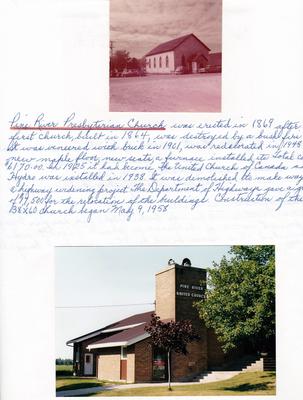 Pine River Presbyterian Church was erected in 1869 after
first church, built in 1864, was destroyed by a bush fire
It was veneered with brick in 1901, was redecorated in 1948
new maple floor, new seats, a furnace installed its total co
$6170.00. In 1925 it had become the United Church of Canada,
Hydro was installed in 1938. It was demolished to make way
a highway widening project. The Department of Highways gave a
of 47,500 for the relocation of the buildings. Construction of the
88x60 church began May 9, 1958
PINE RIVER
UNITED CHURCH